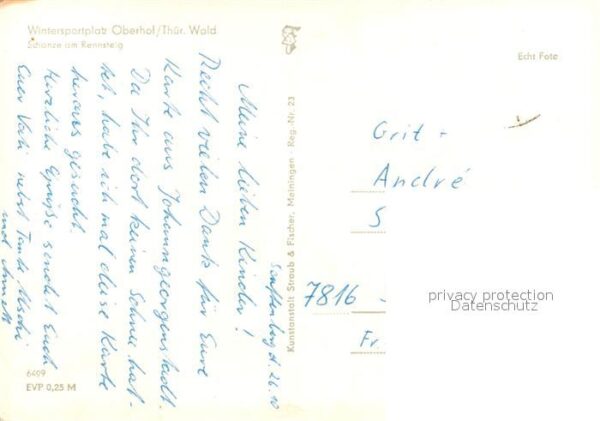 Wintersportplatz Oberhof/Thür. Wald
Schanze am Rennsteig
Senftenberg d. 26.10
Meine lieben Kinder!
Recht vielen Dank für Eure
Karte aus Johanngeorgenstadt.
Da Ihr dort keinen Schnee hat-
tet, habe ich mal diese Karte
heraus gesucht.
Herzliche Grüße sendet Euch
Euer Vati nebst Tante Uschi
und Annett
6409
EVP 0,25 M
Kunstanstalt Straub & Fischer, Meiningen - Reg.-Nr. 23
Echt Foto
Grit -
André
S
7816
Fr.
privacy protection
Datenschutz